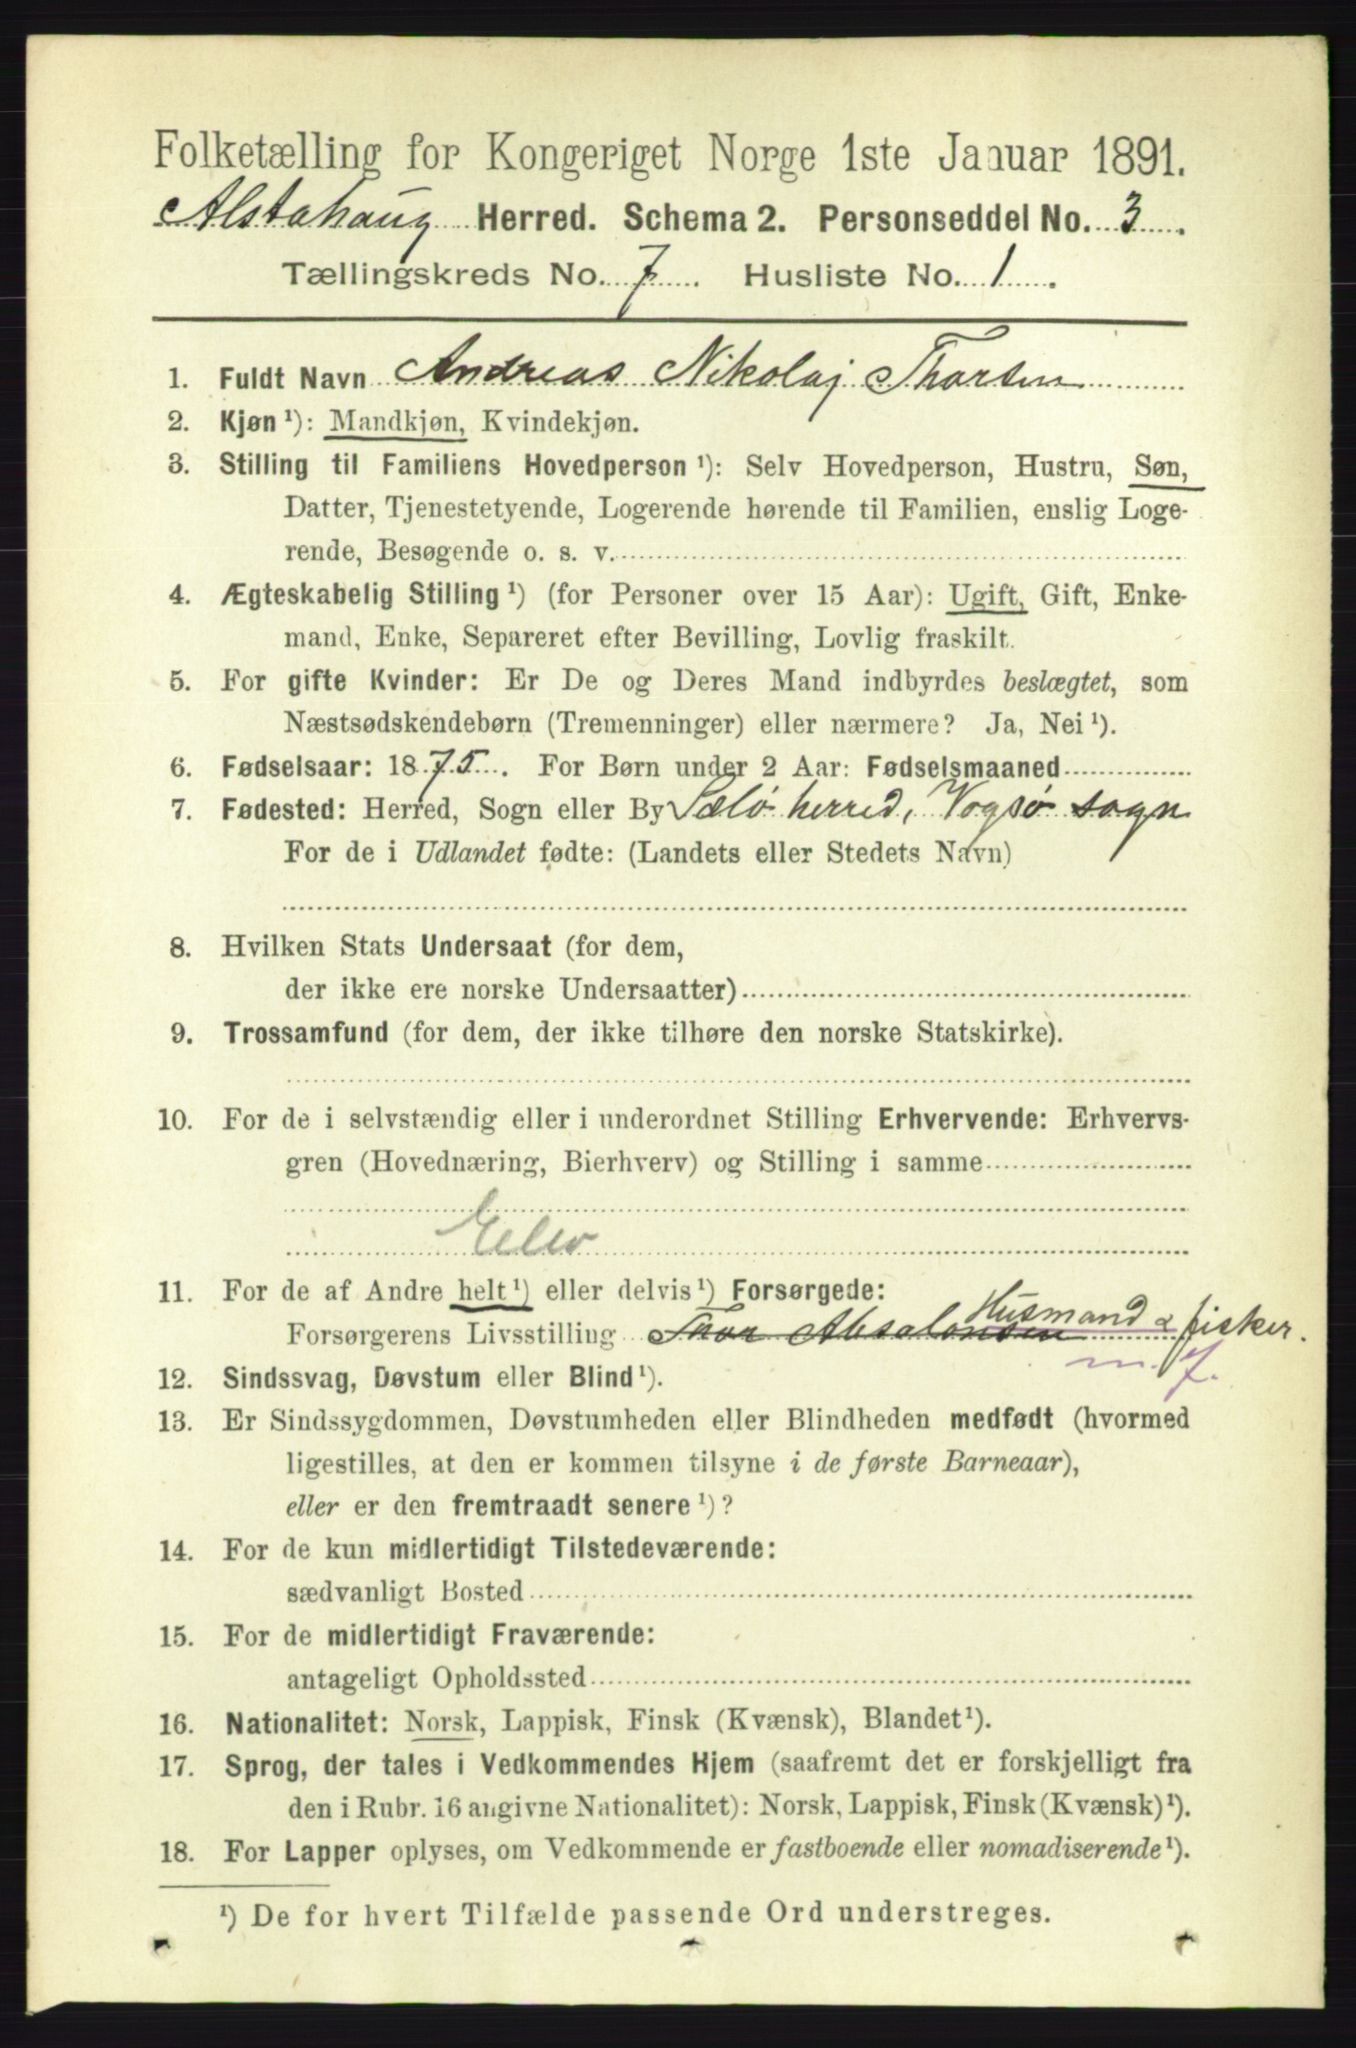 Folketælling for Kongeriget Norge 1ste Januar 1891.
Alstahaug Herred. Schema 2. Personseddel No. 3.
Tællingskreds No. 7. Husliste No. 1.
1. Fuldt Navn Andreas Nikolaj Thorsen
2. Kjøn ¹): Mandkjøn, Kvindekjøn.
3. Stilling til Familiens Hovedperson ¹): Selv Hovedperson, Hustru, Søn,
Datter, Tjenestetyende, Logerende hørende til Familien, enslig Loge-
rende, Besøgende o. s. v.
4. Ægteskabelig Stilling ¹) (for Personer over 15 Aar): Ugift, Gift, Enke-
mand, Enke, Separeret efter Bevilling, Lovlig fraskilt.
5. For gifte Kvinder: Er De og Deres Mand indbyrdes beslægtet, som
Næstsødskendebørn (Tremenninger) eller nærmere? Ja, Nei ¹).
6. Fødselsaar: 1875. For Børn under 2 Aar: Fødselsmaaned
7. Fødested: Herred, Sogn eller By Sælø herred, Vogsø sogn
For de i Udlandet fødte: (Landets eller Stedets Navn)
8. Hvilken Stats Undersaat (for dem,
der ikke ere norske Undersaatter)
9. Trossamfund (for dem, der ikke tilhøre den norske Statskirke).
10. For de i selvstændig eller i underordnet Stilling Erhvervende: Erhvervs-
gren (Hovednæring, Bierhverv) og Stilling i samme
Elev
11. For de af Andre helt ¹) eller delvis ¹) Forsørgede:
Husmand & fisker.
Forsørgerens Livsstilling Thor Absalonsen
m. f.
12. Sindssvag, Døvstum eller Blind ¹).
13. Er Sindssygdommen, Døvstumheden eller Blindheden medfødt (hvormed
ligestilles, at den er kommen tilsyne i de første Barneaar),
eller er den fremtraadt senere ¹)?
14. For de kun midlertidigt Tilstedeværende:
sædvanligt Bosted
15. For de midlertidigt Fraværende:
antageligt Opholdssted
16. Nationalitet: Norsk, Lappisk, Finsk (Kvænsk), Blandet ¹).
17. Sprog, der tales i Vedkommendes Hjem (saafremt det er forskjelligt fra
den i Rubr. 16 angivne Nationalitet): Norsk, Lappisk, Finsk (Kvænsk) ¹).
18. For Lapper oplyses, om Vedkommende er fastboende eller nomadiserende ¹).
¹) De for hvert Tilfælde passende Ord understreges.